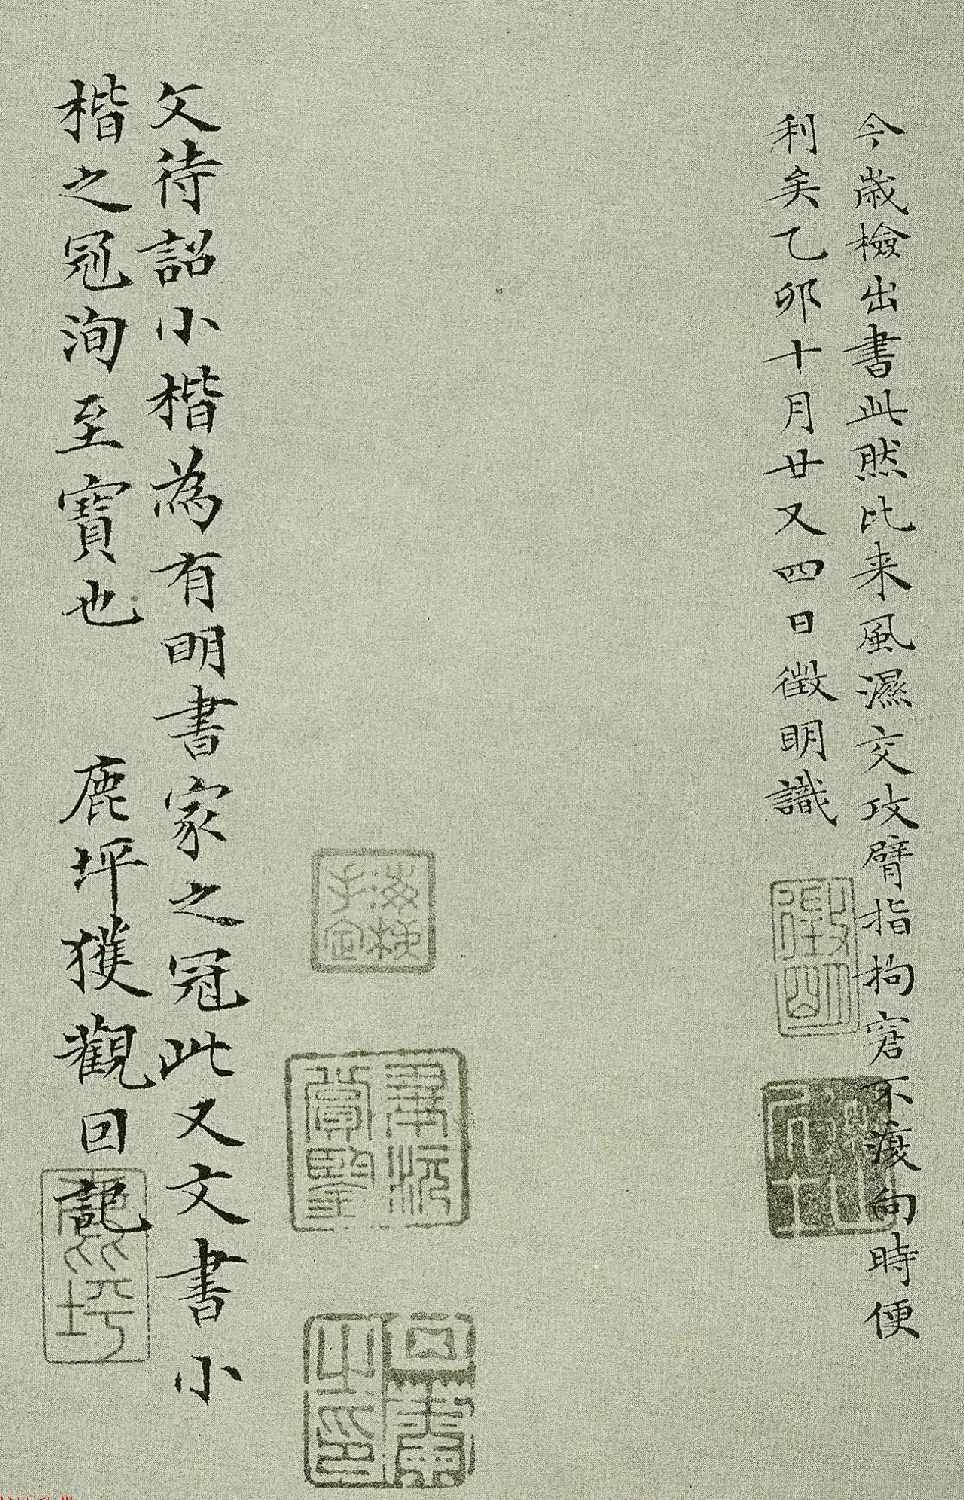 今歲檢出書此然比来風濕交攻臂指拘窘不復向時便
利矣乙卯十月廿又四日徵明識
徵明
文待詔小楷為有明書家之冠此又文書小
楷之冠洵至寶也 鹿坪獲觀回記
鹿坪